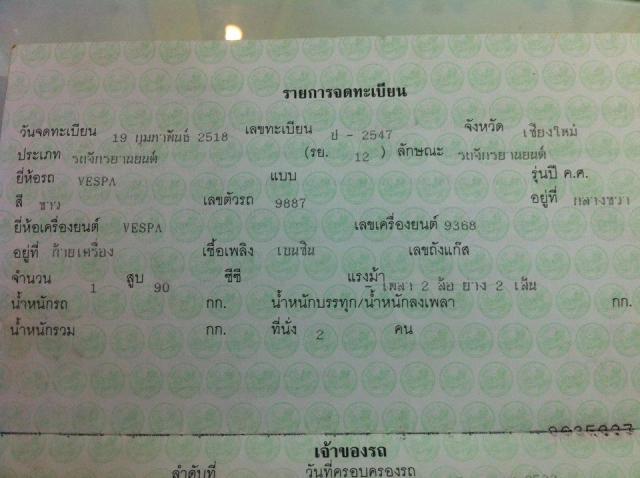 รายการจดทะเบียน
วันจดทะเบียน 19 กุมภาพันธ์ 2518 เลขทะเบียน ป - 2547 จังหวัด เชียงใหม่
ประเภท รถจักรยานยนต์ (รย. 12 ) ลักษณะ รถจักรยานยนต์
ยี่ห้อรถ VESPA แบบ รุ่นปี ค.ศ.
สี ขาว เลขตัวรถ 9887 อยู่ที่ กลางขวา
ยี่ห้อเครื่องยนต์ VESPA เลขเครื่องยนต์ 9368
อยู่ที่ ท้ายเครื่อง เชื้อเพลิง เบนซิน เลขถังแก๊ส
จำนวน 1 สูบ 90 ซีซี แรงม้า - เพลา 2 ล้อ ยาง 2 เส้น
น้ำหนักรถ กก. น้ำหนักบรรทุก/น้ำหนักลงเพลา กก.
น้ำหนักรวม กก. ที่นั่ง 2 คน
เจ้าของรถ
ลำดับที่ วันที่ครอบครองรถ